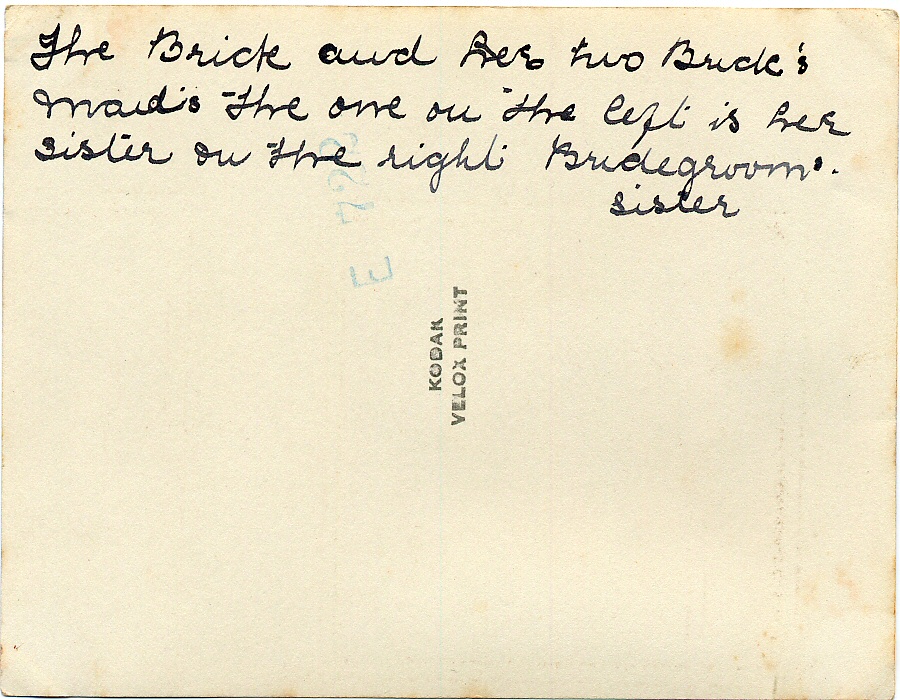 The Bride and her two Bride's
maid's The one on the left is her
sister on the right Bridegroom's.
sister
E 722
KODAK
VELOX PRINT